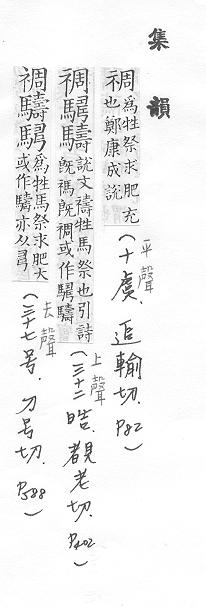 集韻
禂為牲祭求肥充也鄭康成說(平聲十虞.追輸切.P82)
禂騆騳說文禱牲馬祭也引詩既禡既禂或作騆驕(上聲三十二皓.覩老切.P402)
禂為牲馬祭求肥大或作亦从(去聲三十七号.刀号切.P588)